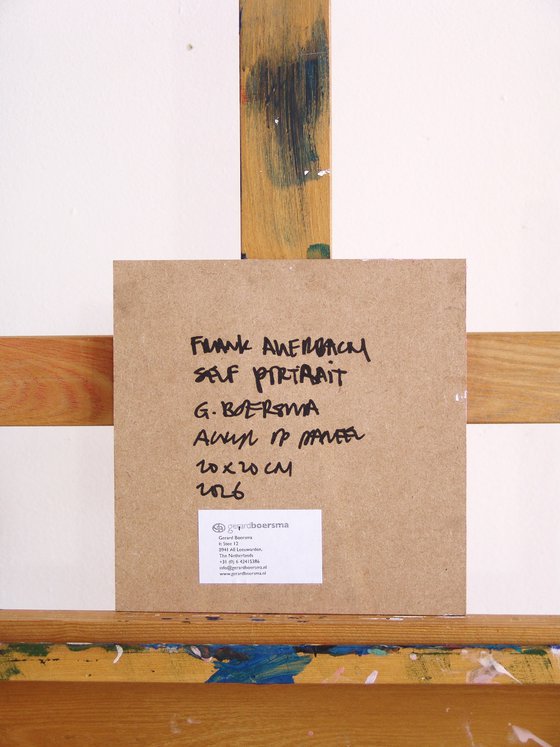 FRANK AUERBACH
SELF PORTRAIT
G. BOERSMA
ACRYL OP PANEEL
20 x 20 CM
2026
gerardboersma
Gerard Boersma
It Stee 12
8941 AS Leeuwarden,
The Netherlands
+31 (0) 6 42415386
info@gerardboersma.nl
www.gerardboersma.nl